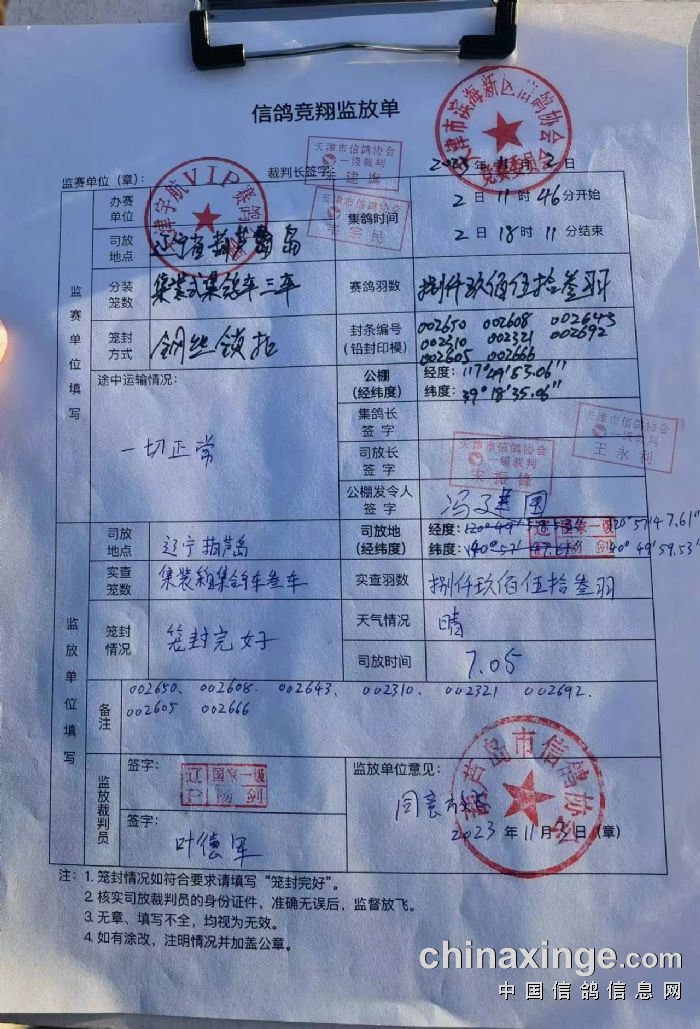 信鸽竞翔监放单
天津市滨海新区信鸽协会
竞赛委员会
天津市信鸽协会
一级裁判
监赛单位（章）： 裁判长签字： 2023年11月2日
VIP赛鸽
天津市信鸽协会
宗民
监赛单位填写
办赛单位
集鸽时间 2日11时46分开始
2日18时11分结束
司放地点 辽宁省葫芦岛
分装笼数 集装式集鸽车三车 赛鸽羽数 捌仟玖佰伍拾叁羽
笼封方式 钢丝锁扣 封条编号（铅封印模） 002650 002608 002643
002310 002321 002692
002605 002666
途中运输情况： 一切正常
公棚（经纬度） 经度：117°49'53.06"
纬度：39°18'35.06"
集鸽长签字
司放长签字
天津市信鸽协会
一级裁判
天津市信鸽协会
一级裁判
王永利
公棚发令人签字 冯建国
监放单位填写
司放地点 辽宁葫芦岛 司放地（经纬度） 经度：120°57'47.61"
纬度：40°49'59.53"
国家一级
实查笼数 集装箱集鸽车叁车 实查羽数 捌仟玖佰伍拾叁羽
笼封情况 笼封完好 天气情况 晴
司放时间 7.05
备注 002650、002608、002643、002310、002321 002692、
002605 002666
监放裁判员
签字： 辽 国家一级
P 杨剑
签字： 叶德军
监放单位意见：
同意放飞
葫芦岛市信鸽协会
2023年11月3日（章）
注：1. 笼封情况如符合要求请填写“笼封完好”。
2. 核实司放裁判员的身份证件，准确无误后，监督放飞。
3. 无章、填写不全，均视为无效。
4. 如有涂改，注明情况并加盖公章。
chinaxinge.com
中国信鸽信息网